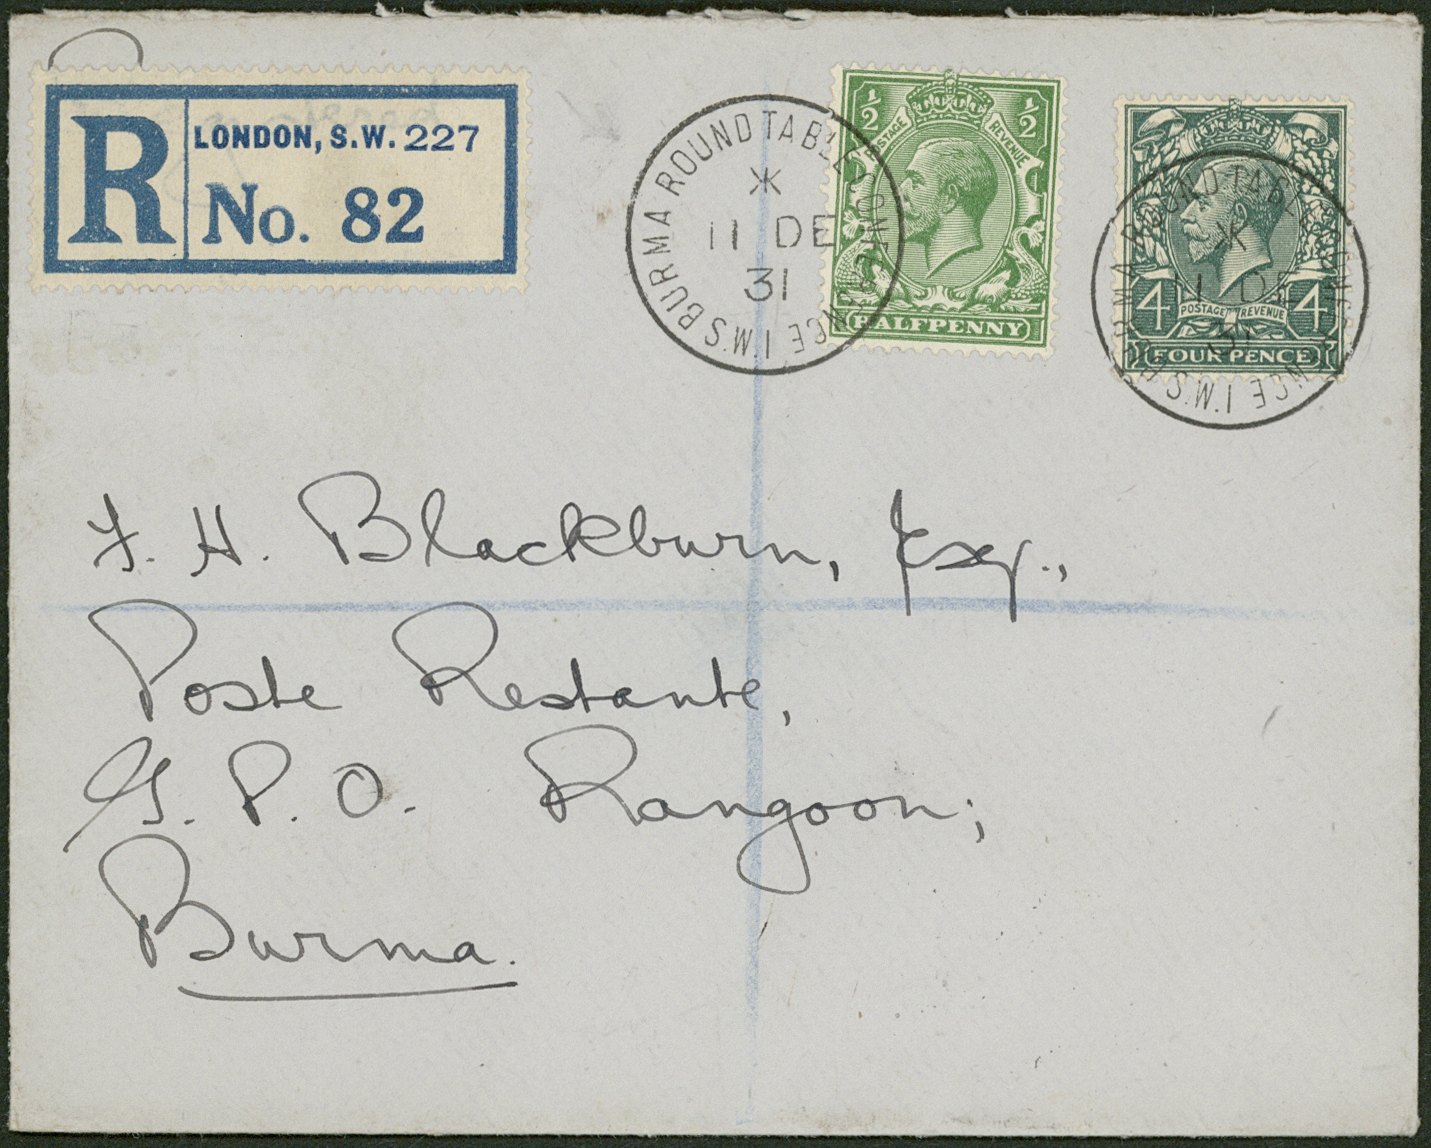 R
LONDON, S.W. 227
No. 82
BURMA ROUND TABLE CONFERENCE I.M.S
11 DE
31
½ ½
POSTAGE REVENUE
HALFPENNY
BURMA ROUND TABLE CONFERENCE I.M.S
11 DE
31
4 4
POSTAGE REVENUE
FOUR PENCE
F. H. Blackburn, Esq.,
Poste Restante,
G. P. O. Rangoon;
Burma.